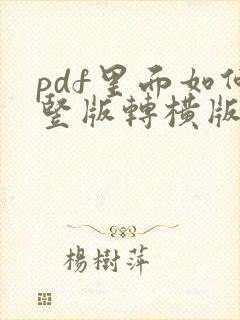 pdf里面如何
竖版轉横版
楊樹萍